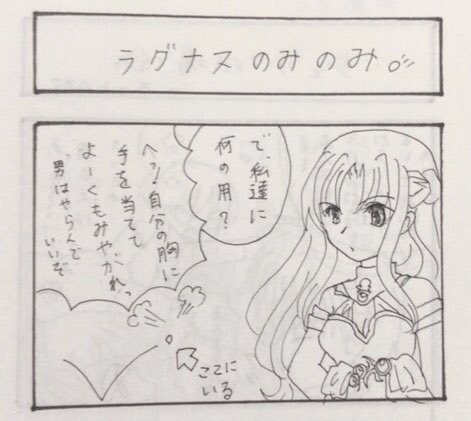 ラグナスのみのみ。
で、私達に
何の用？
へっ！自分の胸に
手を当てて
よーくもみやがれっ
、男はやらんで
いいぞ
ここに
いる